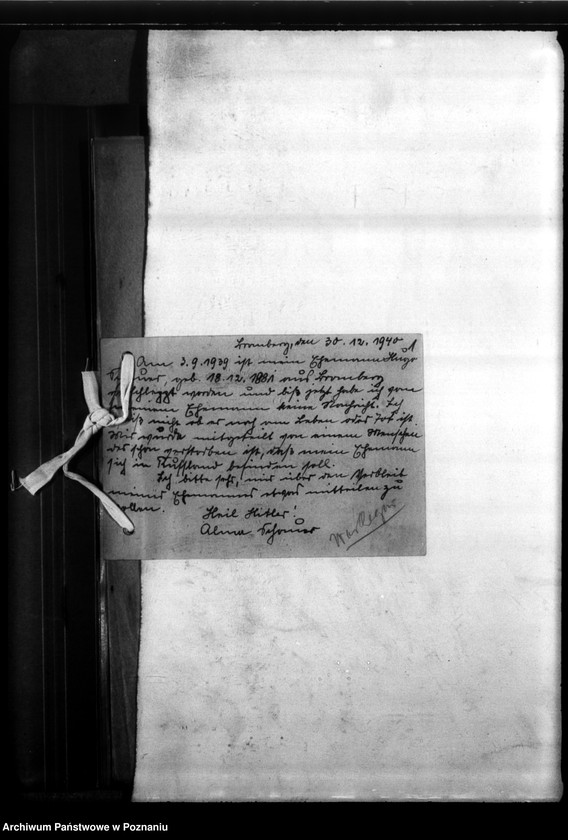 Bromberg, den 30.12.1940
Am 3.9.1939 ist mein Ehemann Hugo
Schauer, geb. 18.12.1881 aus Bromberg
verschleppt worden und bis jetzt habe ich von
meinem Ehemann keine Nachricht. Ich
weiß nicht ob er noch am Leben oder Tot ist.
Mir wurde mitgeteilt von einem Menschen
der schon verstorben ist, daß mein Ehemann
sich in Rußland befinden soll.
Ich bitte sehr, mir über den Verbleib
meines Ehemannes etwas mitteilen zu
wollen.
Heil Hitler!
Alma Schauer
Archiwum Państwowe w Poznaniu